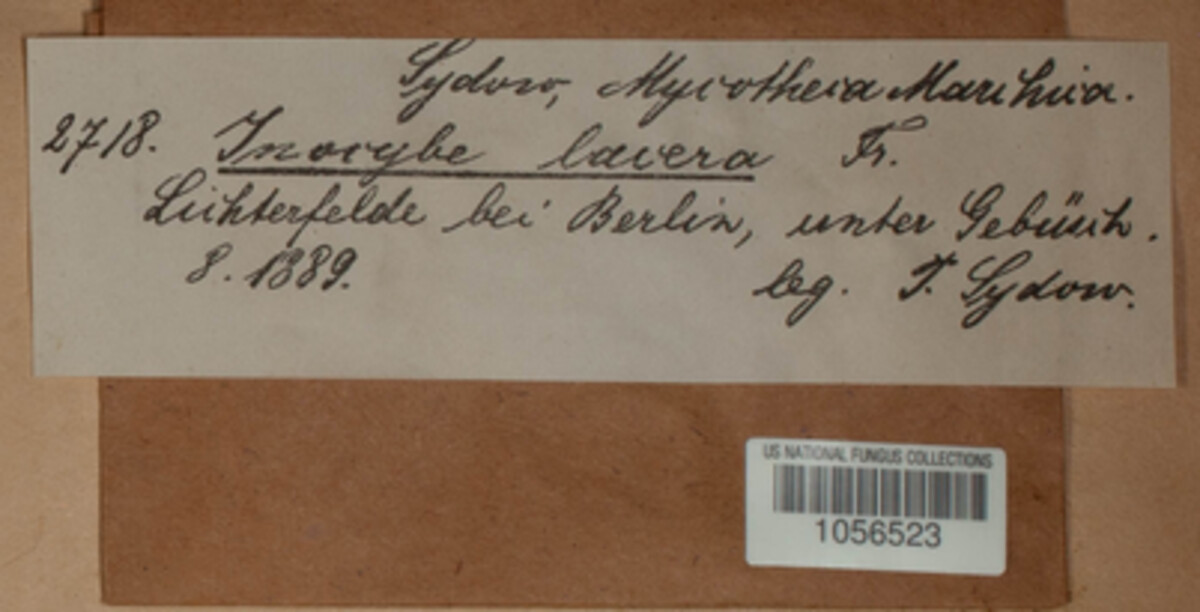 Sydow, Mycotheca Marchica.
2718. Inocybe lacera Fr.
Lichterfelde bei Berlin, unter Gebüsch.
8. 1889. leg. P. Sydow.
US NATIONAL FUNGUS COLLECTIONS
1056523